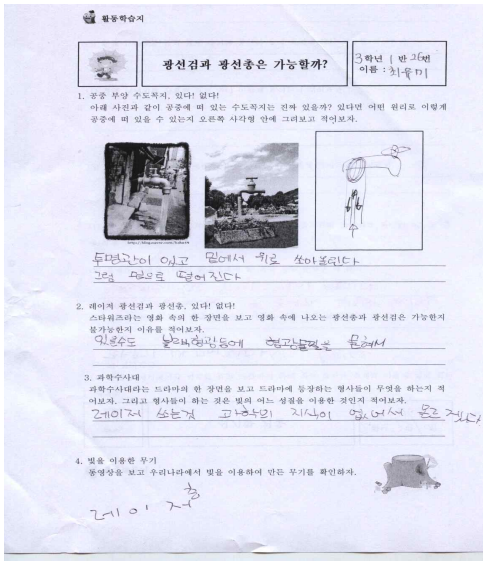 활동학습지
광선검과 광선총은 가능할까?
3학년 1반 26번
이름 : 최유미
1. 공중 부양 수도꼭지, 있다! 없다!
아래 사진과 같이 공중에 떠 있는 수도꼭지는 진짜 있을까? 있다면 어떤 원리로 이렇게
공중에 떠 있을 수 있는지 오른쪽 사각형 안에 그려보고 적어보자.
투명관이 있고 밑에서 위로 쏘아올린다
그럼 옆으로 떨어진다
2. 레이저 광선검과 광선총, 있다! 없다!
스타워즈라는 영화 속의 한 장면을 보고 영화 속에 나오는 광선총과 광선검은 가능한지
불가능한지 이유를 적어보자.
있을수도 형광등에 묻혀서
3. 과학수사대
과학수사대라는 드라마의 한 장면을 보고 드라마에 등장하는 형사들이 무엇을 하는지 적
어보자. 그리고 형사들이 하는 것은 빛의 어느 성질을 이용한 것인지 적어보자.
레이저 쏘는것 과학의 지식이 없어서 모르겠다
4. 빛을 이용한 무기
동영상을 보고 우리나라에서 빛을 이용하여 만든 무기를 확인하자.
레이저총